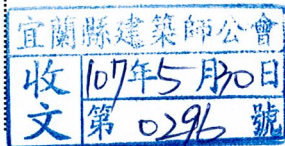 宜蘭縣建築師公會
收文
107年5月30日
第0296號